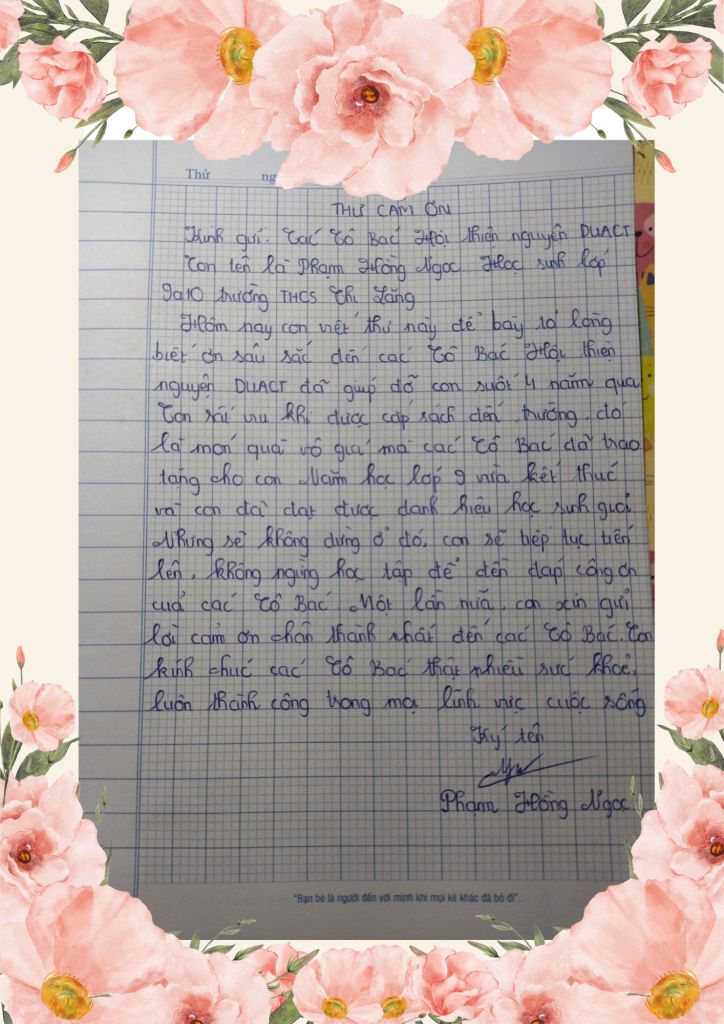 Thứ ng
THƯ CẢM ƠN
Kính gửi: Các Cô Bác Hội thiện nguyện DUACT
Con tên là Phạm Hồng Ngọc Học sinh lớp
9a10 trường THCS Chi Lăng
Hôm nay con viết thư này để bày tỏ lòng
biết ơn sâu sắc đến các Cô Bác Hội thiện
nguyện DUACT đã giúp đỡ con suốt 4 năm qua
Con rất vui khi được cắp sách đến trường, đó
là món quà vô giá mà các Cô Bác đã trao
tặng cho con Năm học lớp 9 vừa kết thúc
và con đã đạt được danh hiệu học sinh giỏi
Nhưng sẽ không dừng ở đó, con sẽ tiếp tục tiến
lên, không ngừng học tập để đền đáp công ơn
của các Cô Bác. Một lần nữa, con xin gửi
lời cảm ơn chân thành nhất đến các Cô Bác. Con
kính chúc các Cô Bác thật nhiều sức khoẻ,
luôn thành công trong mọi lĩnh vực cuộc sống
Ký tên
Phạm Hồng Ngọc
"Bạn bè là người đến với mình khi mọi kẻ khác đã bỏ đi".